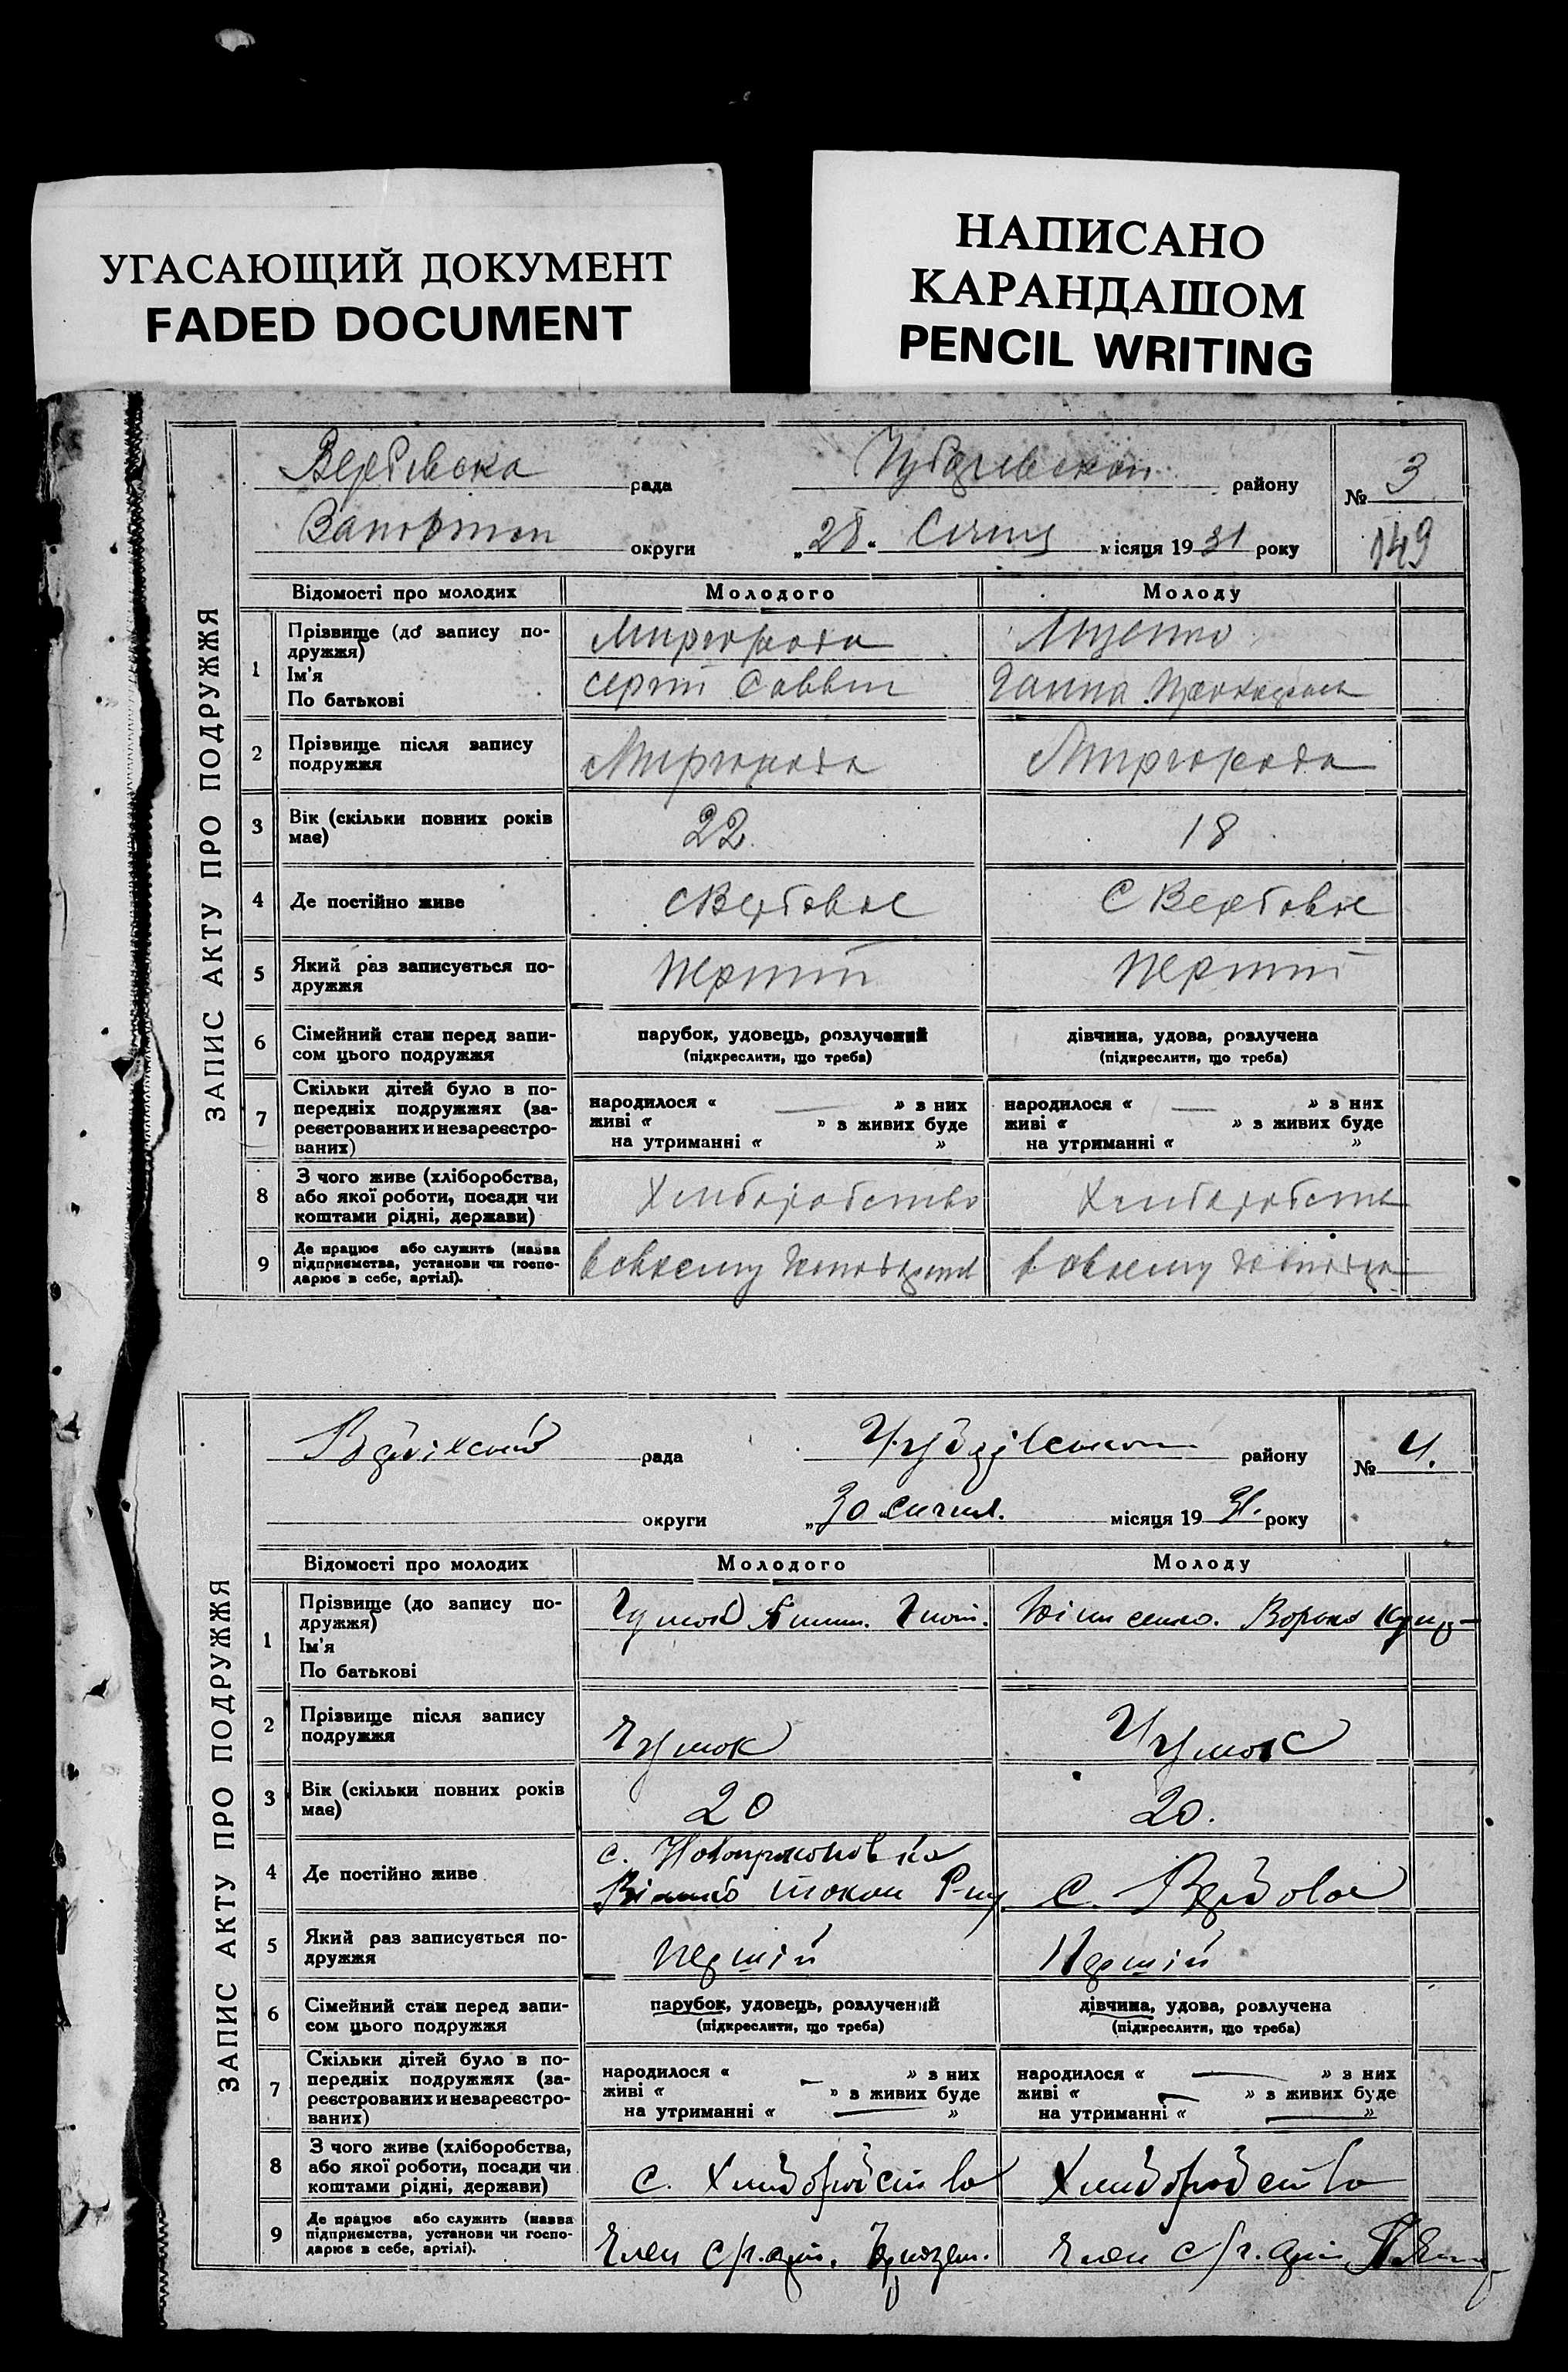 УГАСАЮЩИЙ ДОКУМЕНТ
FADED DOCUMENT
НАПИСАНО
КАРАНДАШОМ
PENCIL WRITING
ЗАПИС АКТУ ПРО ПОДРУЖЖЯ
Вербівска рада району № 3
округи „28“ Січня місяця 1931 року 149
Відомості про молодих Молодого Молоду
1 Прізвище (до запису по-
дружжя)
Ім'я
По батькові
Миргорода
Сергій Саввич
Ганна
2 Прізвище після запису
подружжя
Миргорода Миргорода
3 Вік (скільки повних років
має)
22 18
4 Де постійно живе С Вербовое С Вербовое
5 Який раз записується по-
дружжя
Перший Перший
6 Сімейний стан перед запи-
сом цього подружжя
парубок, удовець, розлучений
(підкреслити, що треба)
дівчина, удова, розлучена
(підкреслити, що треба)
7 Скільки дітей було в по-
передніх подружжях (за-
реєстрованих и незареєстро-
ваних)
народилося « — » з них
живі « » з живих буде
на утриманні « »
народилося « — » з них
живі « » з живих буде
на утриманні « »
8 З чого живе (хліборобства,
або якої роботи, посади чи
коштами рідні, держави)
Хлиборобство Хлиборобство
9 Де працює або служить (назва
підприємства, установи чи госпо-
дарює в себе, артілі).
в своему в своему
ЗАПИС АКТУ ПРО ПОДРУЖЖЯ
рада району № 4.
округи „30 сичня. місяця 1931. року
Відомості про молодих Молодого Молоду
1 Прізвище (до запису по-
дружжя)
Ім'я
По батькові
2 Прізвище після запису
подружжя
Чумак Чумак
3 Вік (скільки повних років
має)
20 20.
4 Де постійно живе
с.
Токмак Р-ну С. Вербовое
5 Який раз записується по-
дружжя
Першій Першій
6 Сімейний стан перед запи-
сом цього подружжя
парубок, удовець, розлучений
(підкреслити, що треба)
дівчина, удова, розлучена
(підкреслити, що треба)
7 Скільки дітей було в по-
передніх подружжях (за-
реєстрованих и незареєстро-
ваних)
народилося « — » з них
живі « » з живих буде
на утриманні « — »
народилося « — » з них
живі « — » з живих буде
на утриманні « — »
8 З чого живе (хліборобства,
або якої роботи, посади чи
коштами рідні, держави)
С. Хлиборобство Хлиборобство
9 Де працює або служить (назва
підприємства, установи чи госпо-
дарює в себе, артілі).
Член с/г. арт. Член с/г. арт.